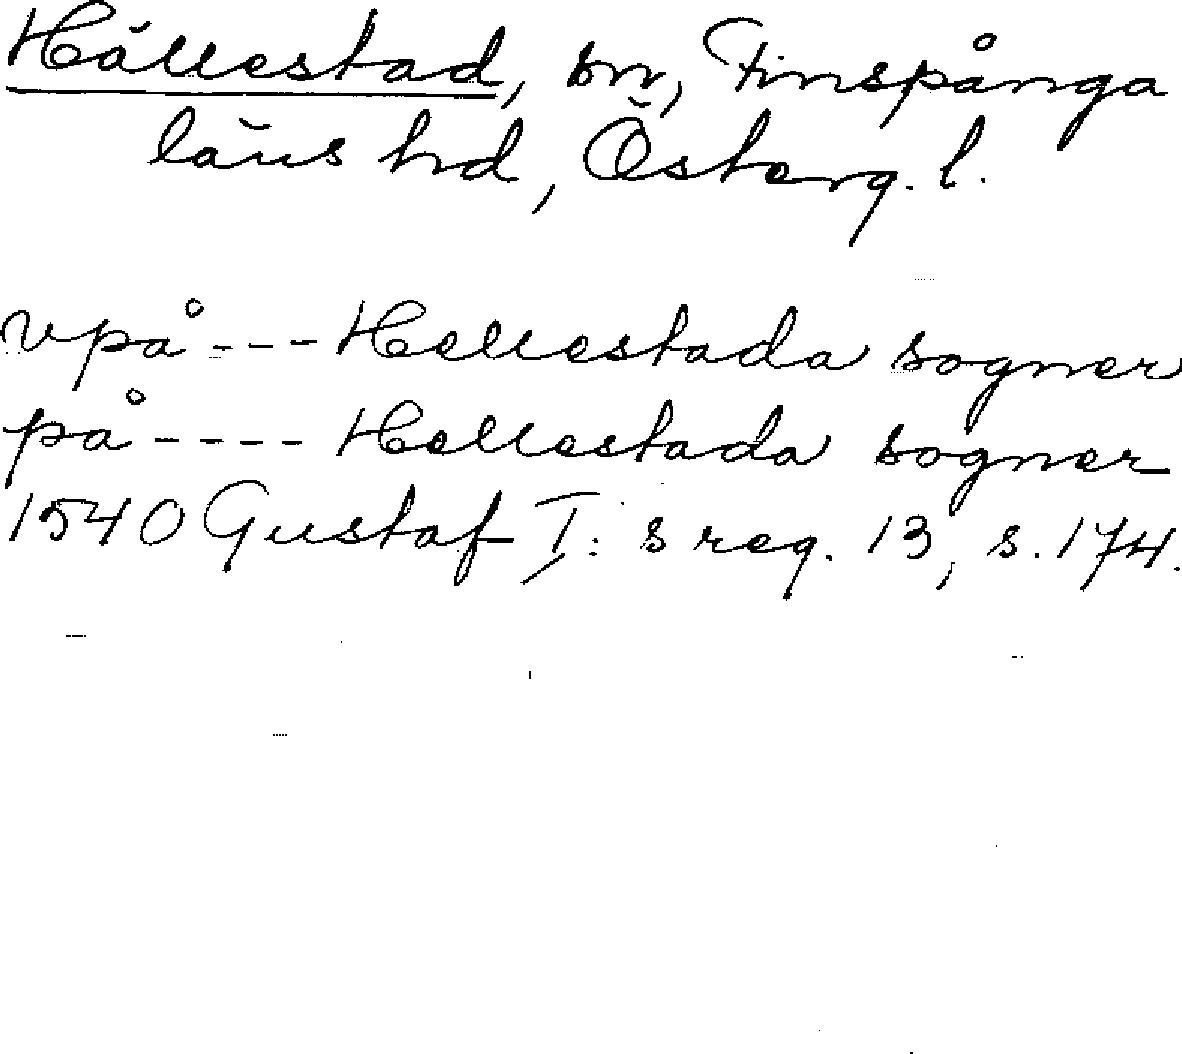 Hällestad, sn, Finspånga
läns hd, Österg. l.
vpå --- Hellestada sogner
på ---- Hellestada sogner
1540 Gustaf I:s reg. 13, s. 174.